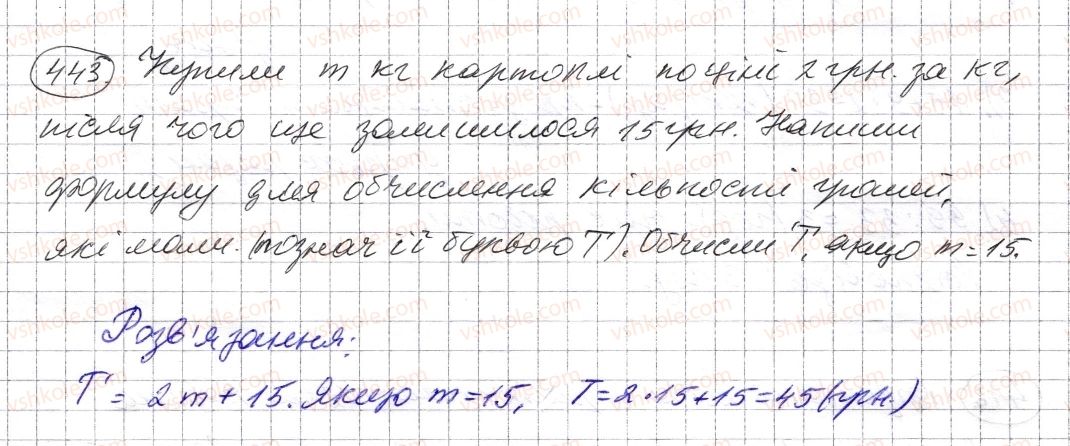 443 Купили m кг картоплі по ціні 2 грн. за кг,
після чого ще залишилося 15 грн. Напиши
формулу для обчислення кількості грошей,
які мали. (познач її буквою Т). Обчисли Т, якщо m = 15.
Розв'язання:
Т = 2m + 15. Якщо m = 15, Т = 2·15+15=45 (грн.)